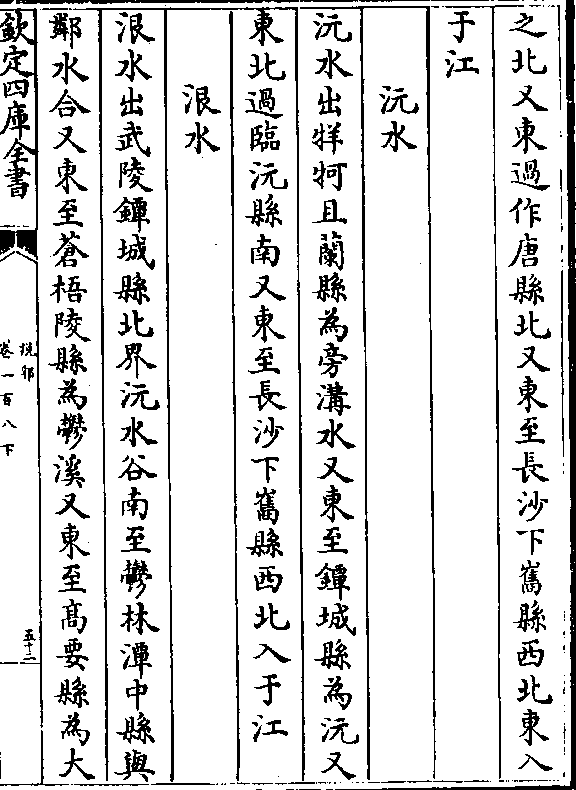 之北又東過作唐縣北又東至長沙下雋縣西北東入
于江
沅水
沅水出牂牁且蘭縣為旁溝水又東至鐔城縣為沅又
東北過臨沅縣南又東至長沙下雋縣西北入于江
泿水
泿水出武陵鐔城縣北界沅水谷南至鬱林潭中縣與
鄰水合又東至蒼梧陵縣為鬱溪又東至髙要縣為大
欽定四庫全書
說郛
卷一百八下
五十二